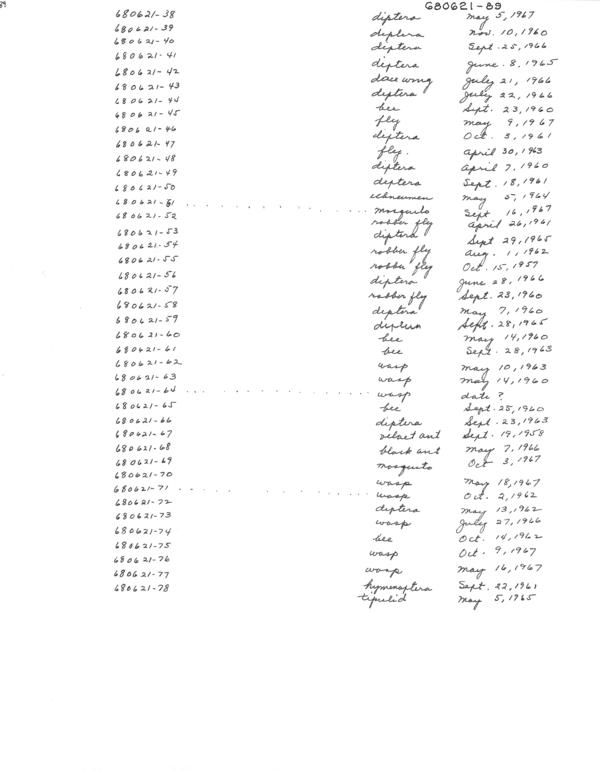 89
680621-89
680621-38 diptera May 5, 1967
680621-39 diptera Nov. 10, 1960
680621-40 diptera Sept. 25, 1966
680621-41 diptera June. 8, 1965
680621-42 dace wing July 21, 1966
680621-43 diptera July 22, 1966
680621-44 bee Sept. 23, 1960
680621-45 fly May 9, 1967
680621-46 diptera Oct. 3, 1961
680621-47 fly. April 30, 1963
680621-48 diptera April 7, 1960
680621-49 diptera Sept. 18, 1961
680621-50 ichneumen May 5, 1964
680621-51 . . . . . . . . . . . . . . mosquito Sept 16, 1967
680621-52 robber fly April 26, 1961
680621-53 diptera Sept 29, 1965
680621-54 robber fly Aug. 1, 1962
680621-55 robber fly Oct. 15, 1957
680621-56 diptera June 28, 1966
680621-57 robber fly Sept. 23, 1960
680621-58 diptera May 7, 1960
680621-59 diptera Sept. 28, 1965
680621-60 bee May 14, 1960
680621-61 bee Sept. 28, 1963
680621-62 wasp May 10, 1963
680621-63 wasp May 14, 1960
680621-64 . . . . . . . . . . . . . . wasp date ?
680621-65 bee Sept. 25, 1960
680621-66 diptera Sept. 23, 1963
680621-67 velvet ant Sept. 19, 1958
680621-68 black ant May 7, 1966
680621-69 mosquito Oct 3, 1967
680621-70 wasp May 18, 1967
680621-71 . . . . . . . . . . . . . . wasp Oct. 2, 1962
680621-72 diptera May 13, 1962
680621-73 wasp July 27, 1966
680621-74 bee Oct. 14, 1962
680621-75 wasp Oct. 9, 1967
680621-76 wasp May 16, 1967
680621-77 hymenoptera Sept. 22, 1961
680621-78 tipulid May 5, 1965